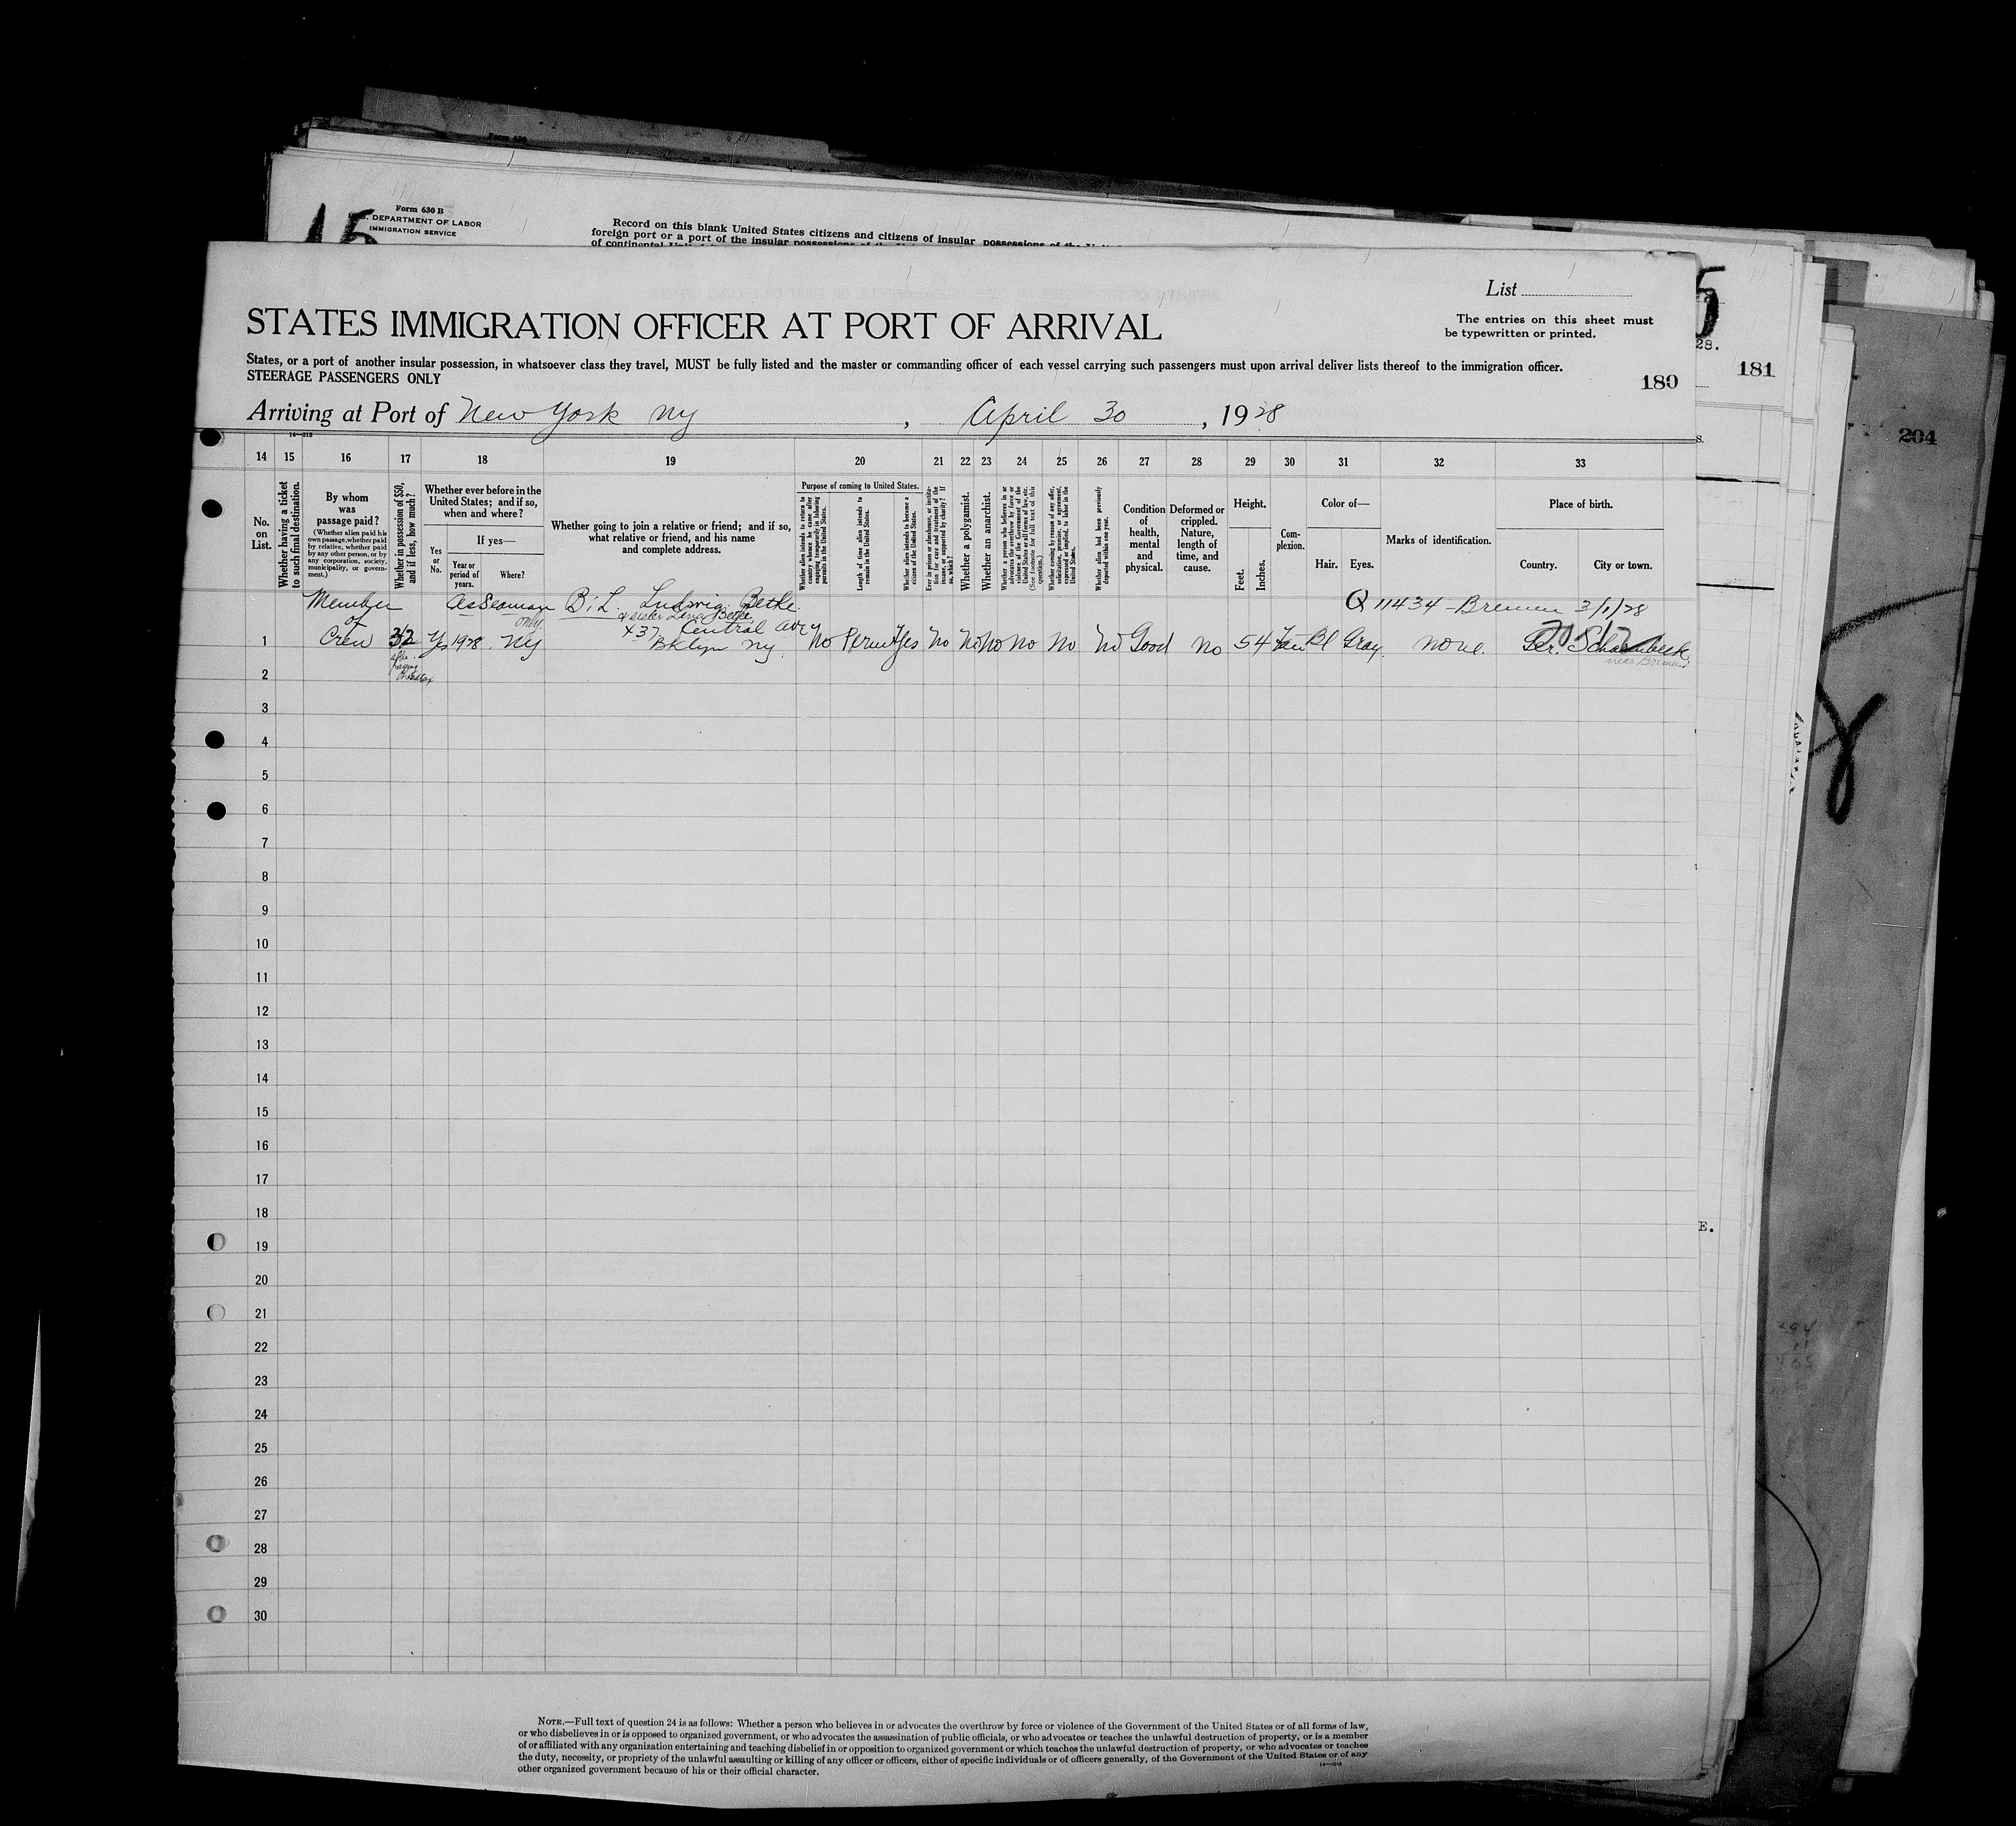 Form 630 B
DEPARTMENT OF LABOR
IMMIGRATION SERVICE
15
Record on this blank United States citizens and citizens of insular possessions of the
foreign port or a port of the insular possessions of the
of continental
List
STATES IMMIGRATION OFFICER AT PORT OF ARRIVAL
The entries on this sheet must
be typewritten or printed.
5
28.
States, or a port of another insular possession, in whatsoever class they travel, MUST be fully listed and the master or commanding officer of each vessel carrying such passengers must upon arrival deliver lists thereof to the immigration officer.
STEERAGE PASSENGERS ONLY
180
181
204
Arriving at Port of New York NY, April 30, 1928
S.
14 15 16 17 18 19 20 21 22 23 24 25 26 27 28 29 30 31 32 33
No. on List.
Whether having a ticket to such final destination.
By whom was passage paid?
(Whether alien paid his own passage, whether paid by relative, whether paid by any other person, or by any corporation, society, municipality, or government.)
Whether in possession of $50, and if less, how much?
Whether ever before in the United States; and if so, when and where?
Yes or No.
If yes—
Year or period of years.
Where?
Whether going to join a relative or friend; and if so, what relative or friend, and his name and complete address.
Purpose of coming to United States.
Whether alien intends to return to country whence he came after engaging temporarily in laboring pursuits in the United States.
Length of time alien intends to remain in the United States.
Whether alien intends to become a citizen of the United States.
Ever in prison or almshouse, or institution for care and treatment of the insane, or supported by charity? If so, which?
Whether a polygamist.
Whether an anarchist.
Whether a person who believes in or advocates the overthrow by force or violence of the Government of the United States or all forms of law, etc. (See footnote for full text of this question.)
Whether coming by reason of any offer, solicitation, promise, or agreement, expressed or implied, to labor in the United States.
Whether alien had been previously deported within one year.
Condition of health, mental and physical.
Deformed or crippled. Nature, length of time, and cause.
Height.
Feet.
Inches.
Complexion.
Color of—
Hair. Eyes.
Marks of identification.
Place of birth.
Country. City or town.
Member As Seaman B.i.L. Ludwig Betke Q 11434 - Bremen 3/1/28
of only & sister Betke
1 Crew 32 Yes 1928 NY 437 Central Ave Bklyn NY No Perm Yes No No No No No No Good No 5 4 Bl Gray none. Ger.
after paying
near Bremen
2
3
4
5
6
7
8
9
10
11
12
13
14
15
16
17
18
E.
19
20
21
22
23
24
25
26
27
28
29
30
NOTE.—Full text of question 24 is as follows: Whether a person who believes in or advocates the overthrow by force or violence of the Government of the United States or of all forms of law,
or who disbelieves in or is opposed to organized government, or who advocates the assassination of public officials, or who advocates or teaches the unlawful destruction of property, or is a member
of or affiliated with any organization entertaining and teaching disbelief in or opposition to organized government or which teaches the unlawful destruction of property, or who advocates or teaches
the duty, necessity, or propriety of the unlawful assaulting or killing of any officer or officers, either of specific individuals or of officers generally, of the Government of the United States or of any
other organized government because of his or their official character.